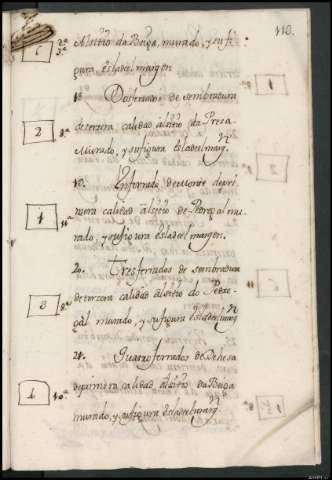 110.
al sitio da Beiga, murado, y su fi
gura es la del margen
18 Dosferrados de sembradura
de tercera calidad al sitio da Preza
Murado, y su figura es la del marg.n
19. Un ferrado de Monte de pri
mera calidad al sitio de Pedro al mu
rado, y su figura es la del margen.
20. Tres ferrados de sembradura
de tercera calidad al sitio do
gal murado, y su figura es la del marg.n
21. Quatro ferrados de Dehesa
de primera calidad al sitio da Beiga
murado, y su figura es la del marg.n
2 8ª
1 11ª
3 8ª
4 10ª